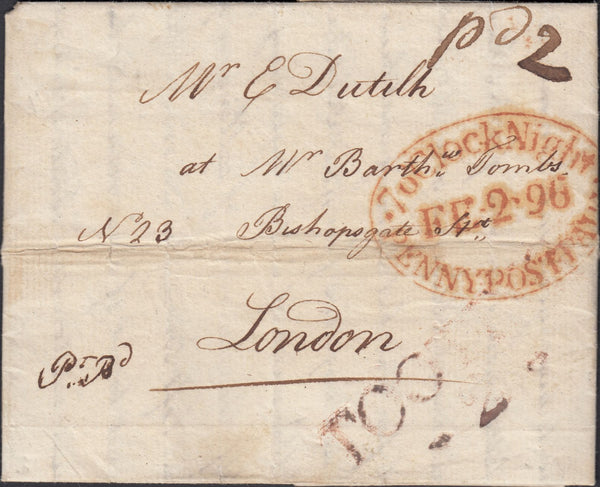 pd 2
Mr E Dutilh
at Mr Barthw Tombs
No 23 Bishopsgate Stt
London
Pr Pd
7 o'Clock Night
FE·2·96
PENNY POST PAID
TOO